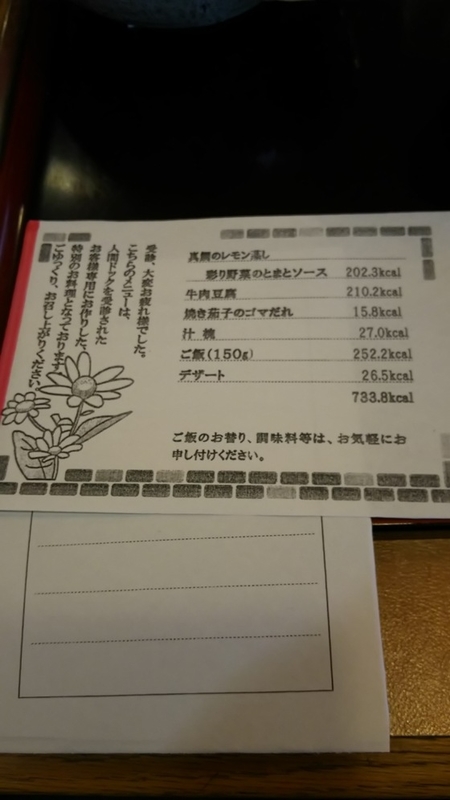 受診、大変お疲れ様でした。
こちらのメニューは、
人間ドックを受診された
お客様専用にお作りした、
特別のお料理となっております。
ごゆっくり、お召し上がりください。
真鯛のレモン蒸し
彩り野菜のとまとソース 202.3kcal
牛肉豆腐 210.2kcal
焼き茄子のゴマだれ 15.8kcal
汁 椀 27.0kcal
ご飯(150g) 252.2kcal
デザート 26.5kcal
733.8kcal
ご飯のお替り、調味料等は、お気軽にお
申し付けください。